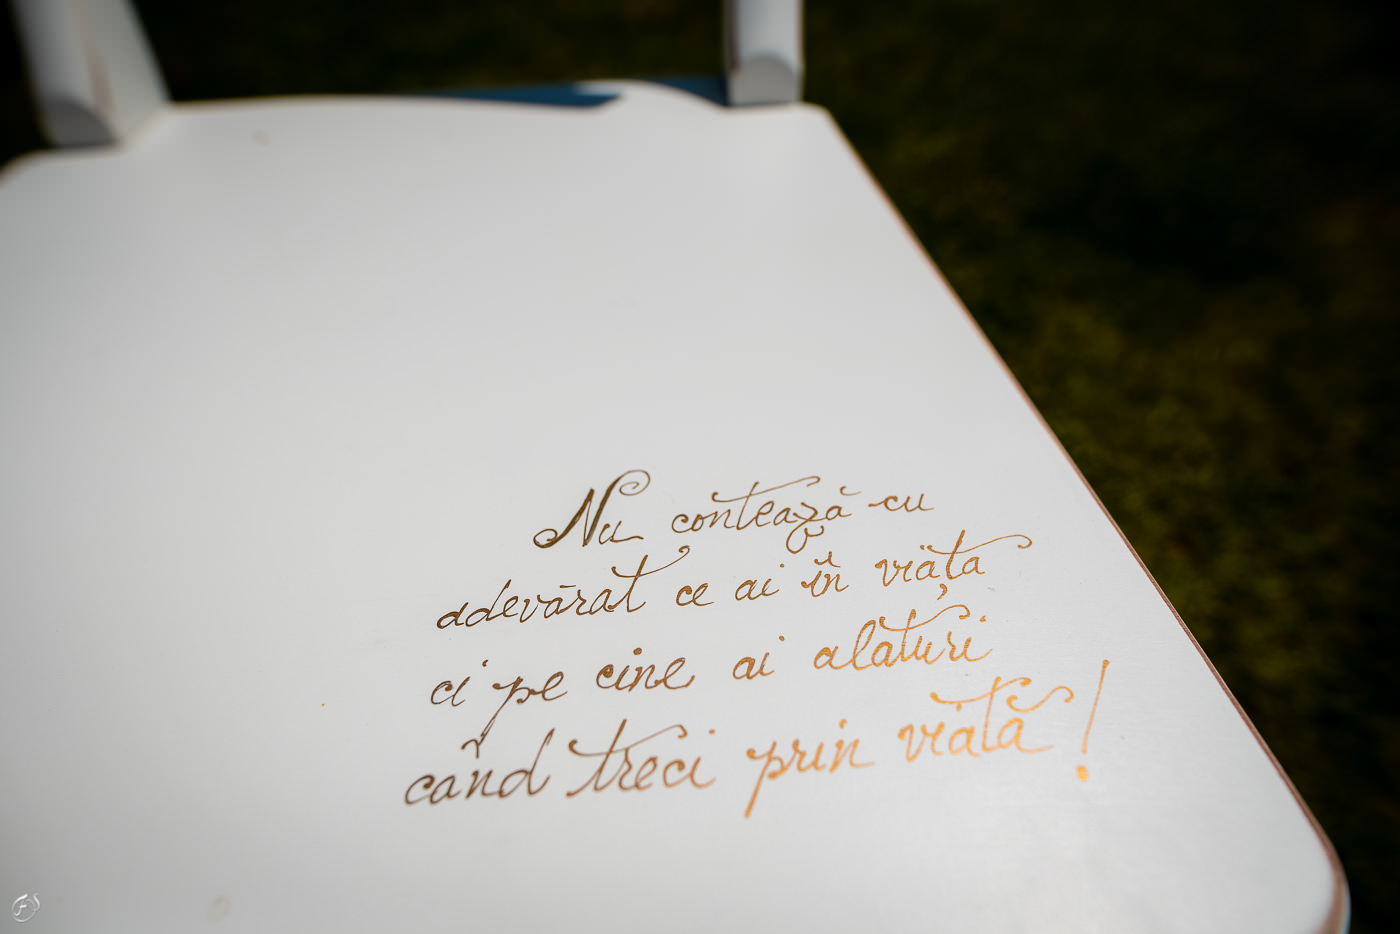 Nu contează cu
adevărat ce ai în viăța
ci pe cine ai alaturi
când treci prin viată!